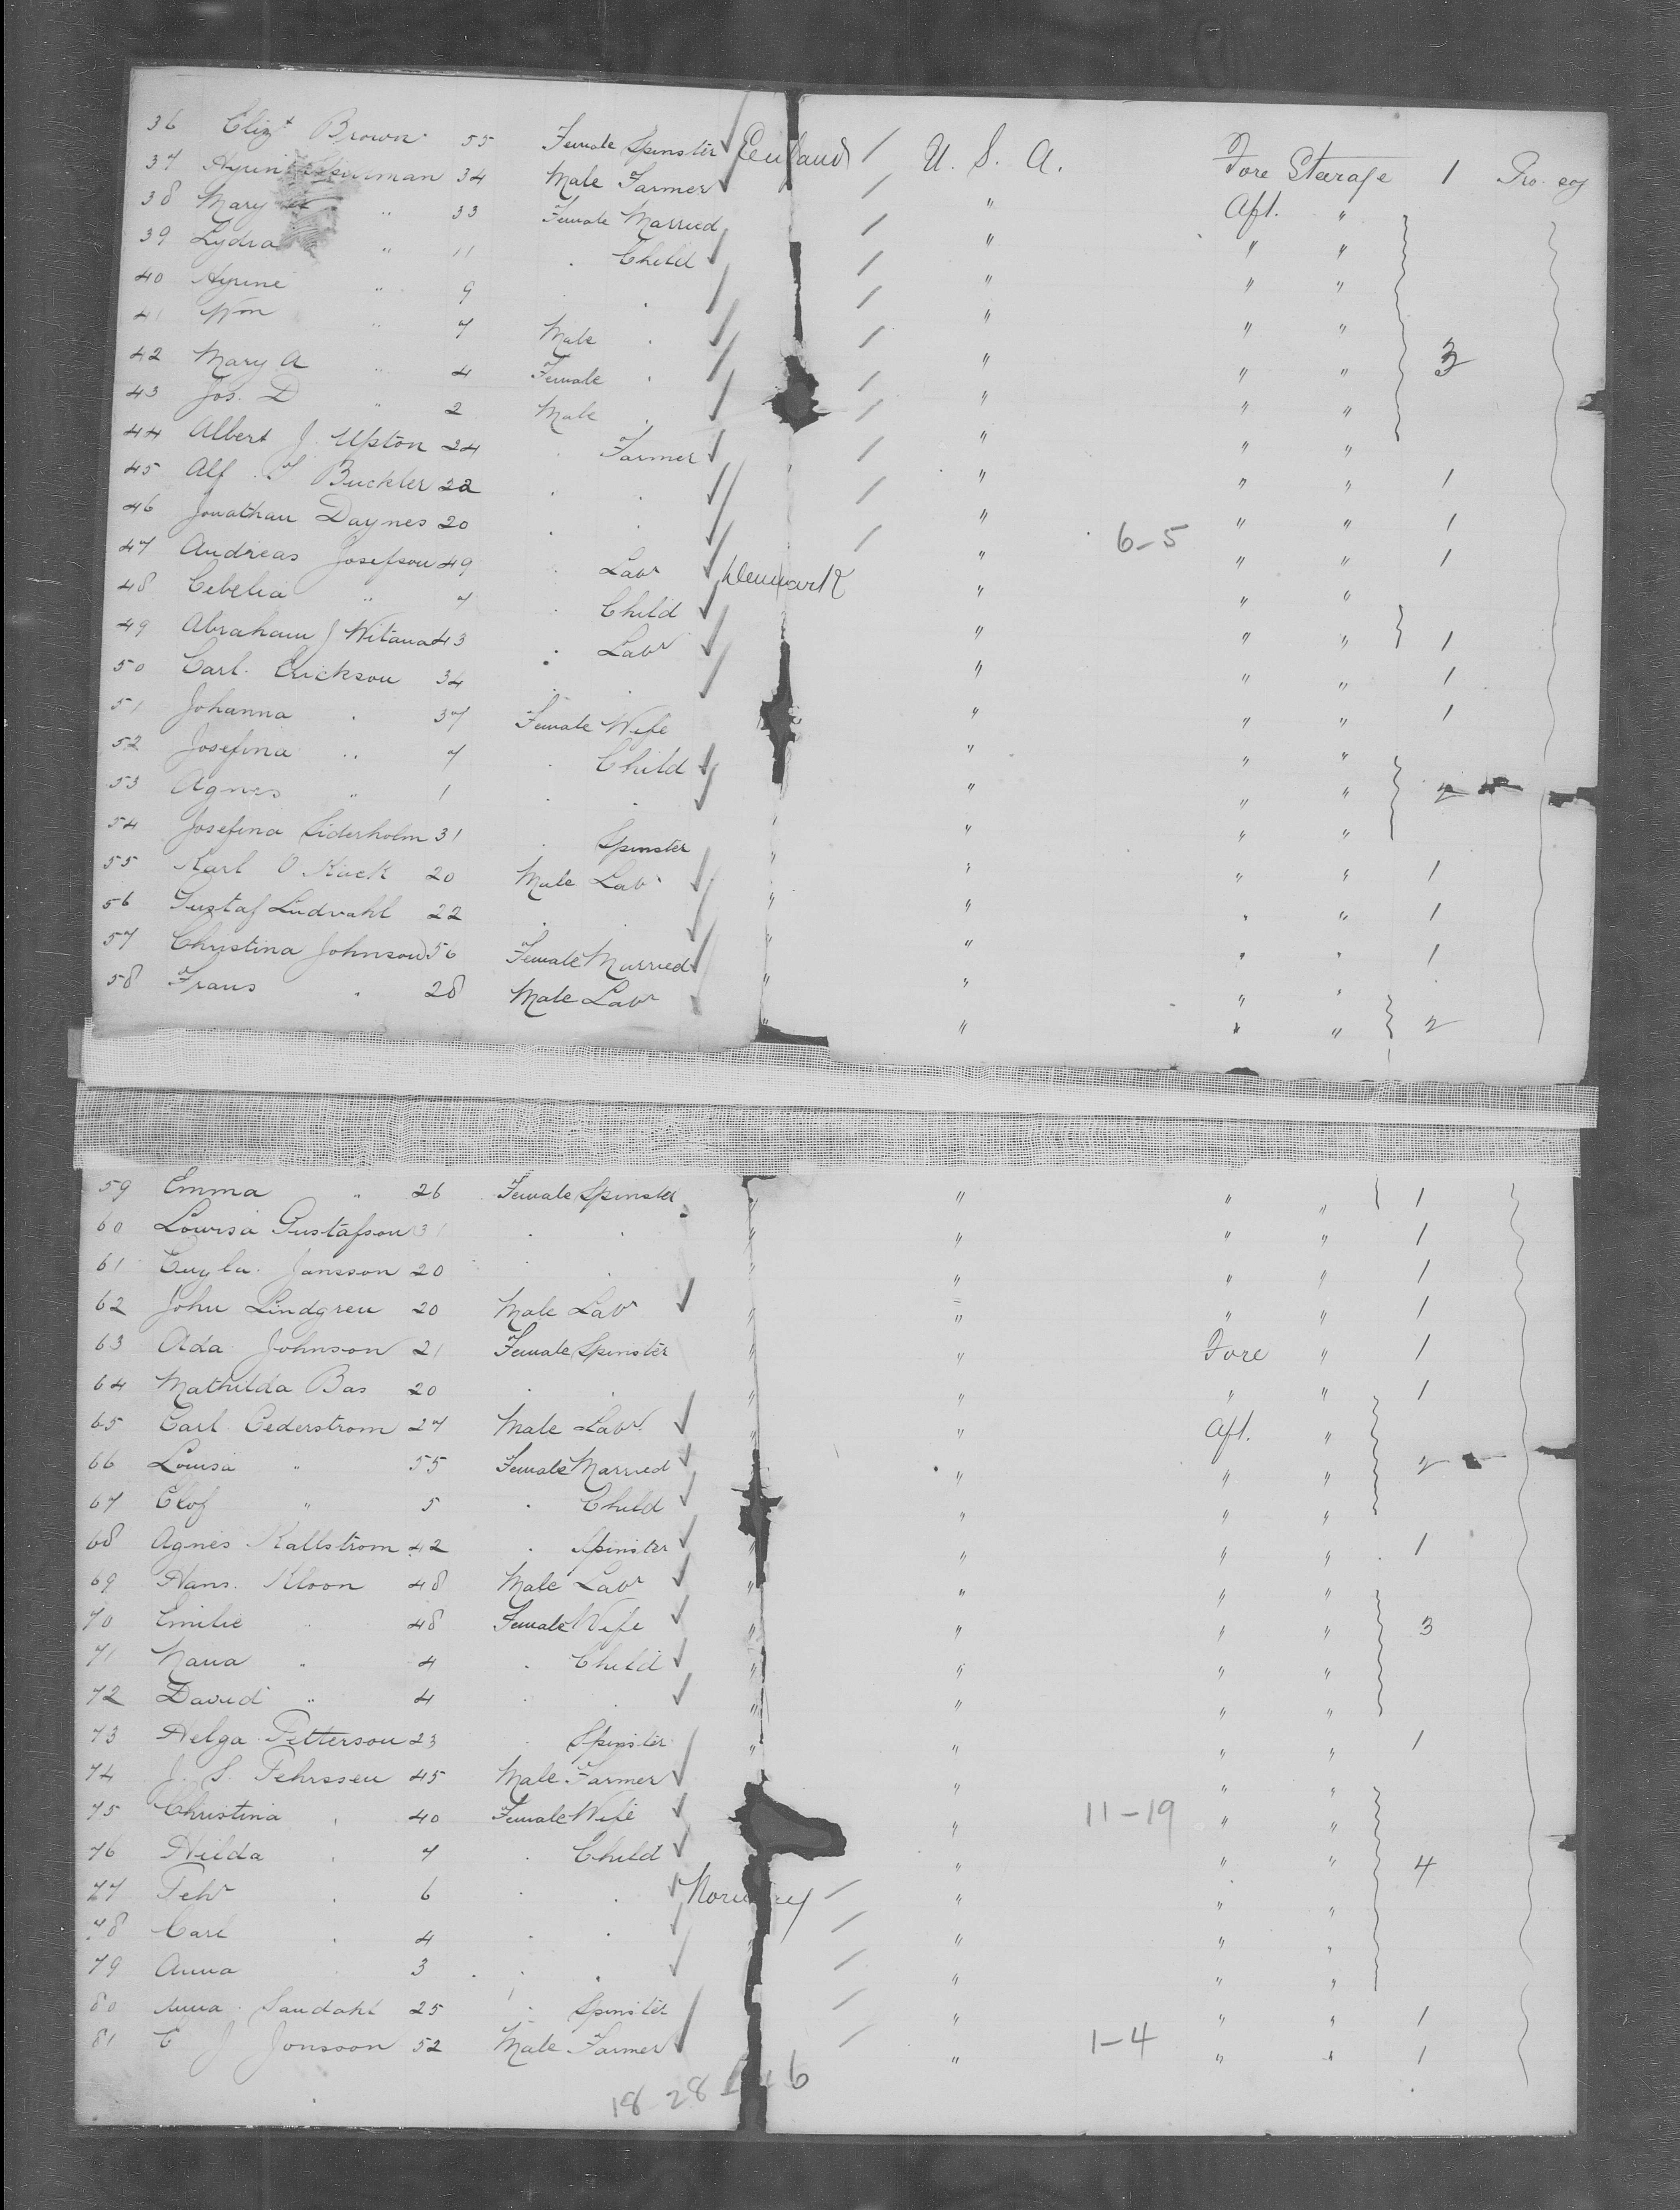 36 Elizt Brown 55 Female Spinster England / U. S. A. Fore Steerage 1 Pro. soj
37 34 Male Farmer / " Aft. "
38 Mary " 33 Female Married / " " "
39 Lydia " 11 . Child / " " "
40 Ayrine " 9 . . / " " "
41 Wm " 7 Male . / " " " 3
42 Mary A " 4 Female . / " " "
43 Jos. D " 2 Male . / " " "
44 Albert J Upton 24 . Farmer / " " " 1
45 Alf T Buckler 22 . . / " " " 1
46 Jonathan Daynes 20 . . / " 6-5 " " 1
47 Andreas Josefson 49 . Labr Denmark " " "
48 Cebelia " 7 . Child " " " 1
49 Abraham J 43 . Labr " " " 1
50 Carl Erickson 34 . . " " " 1
51 Johanna . 37 Female Wife " " "
52 Josefina " 7 . Child " " " 2
53 Agnes " 1 . . " " "
54 Josefina Siderholm 31 . Spinster " " " " 1
55 Karl O 20 Male Labr " " " " 1
56 Gustaf Ludvahl 22 . . " " . . 1
57 Christina Johnson 56 Female Married " " " "
58 Frans . 28 Male Labr " " " " 2
59 Emma " 26 Female Spinster " " " " 1
60 Lowisa Gustafson 31 . . " " " " 1
61 Jansson 20 . . " " " " 1
62 John Lindgren 20 Male Labr " " " " 1
63 Ada Johnson 21 Female Spinster " " Fore " 1
64 Mathilda Bas 20 . . " " " " 1
65 Carl Cederstrom 27 Male Labr " " Aft. "
66 Louisa " 55 Female Married " " " " 2
67 Elof " 5 . Child " " "
68 Agnes Kallstrom 42 . Spinster " " " 1
69 Hans Kloon 48 Male Labr " " " "
70 Emilie " 48 Female Wife " " " " 3
71 Nana " 4 . Child " " " "
72 David " 4 . . " " " "
73 Helga Petterson 23 . Spinster " " " " 1
74 J. S. Pehrssen 45 Male Farmer " " "
75 Christina . 40 Female Wife " 11-19 " "
76 Hilda . 7 . Child " . " 4
77 Pehr . 6 . . Norway / " " "
78 Carl . 4 . . / " " "
79 Anna 3 . . / " " "
80 Anna Sandahl 25 . Spinster / " " " 1
81 C J Jonsson 52 Male Farmer / " 1-4 " " 1
18 28 6